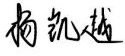 杨凯越